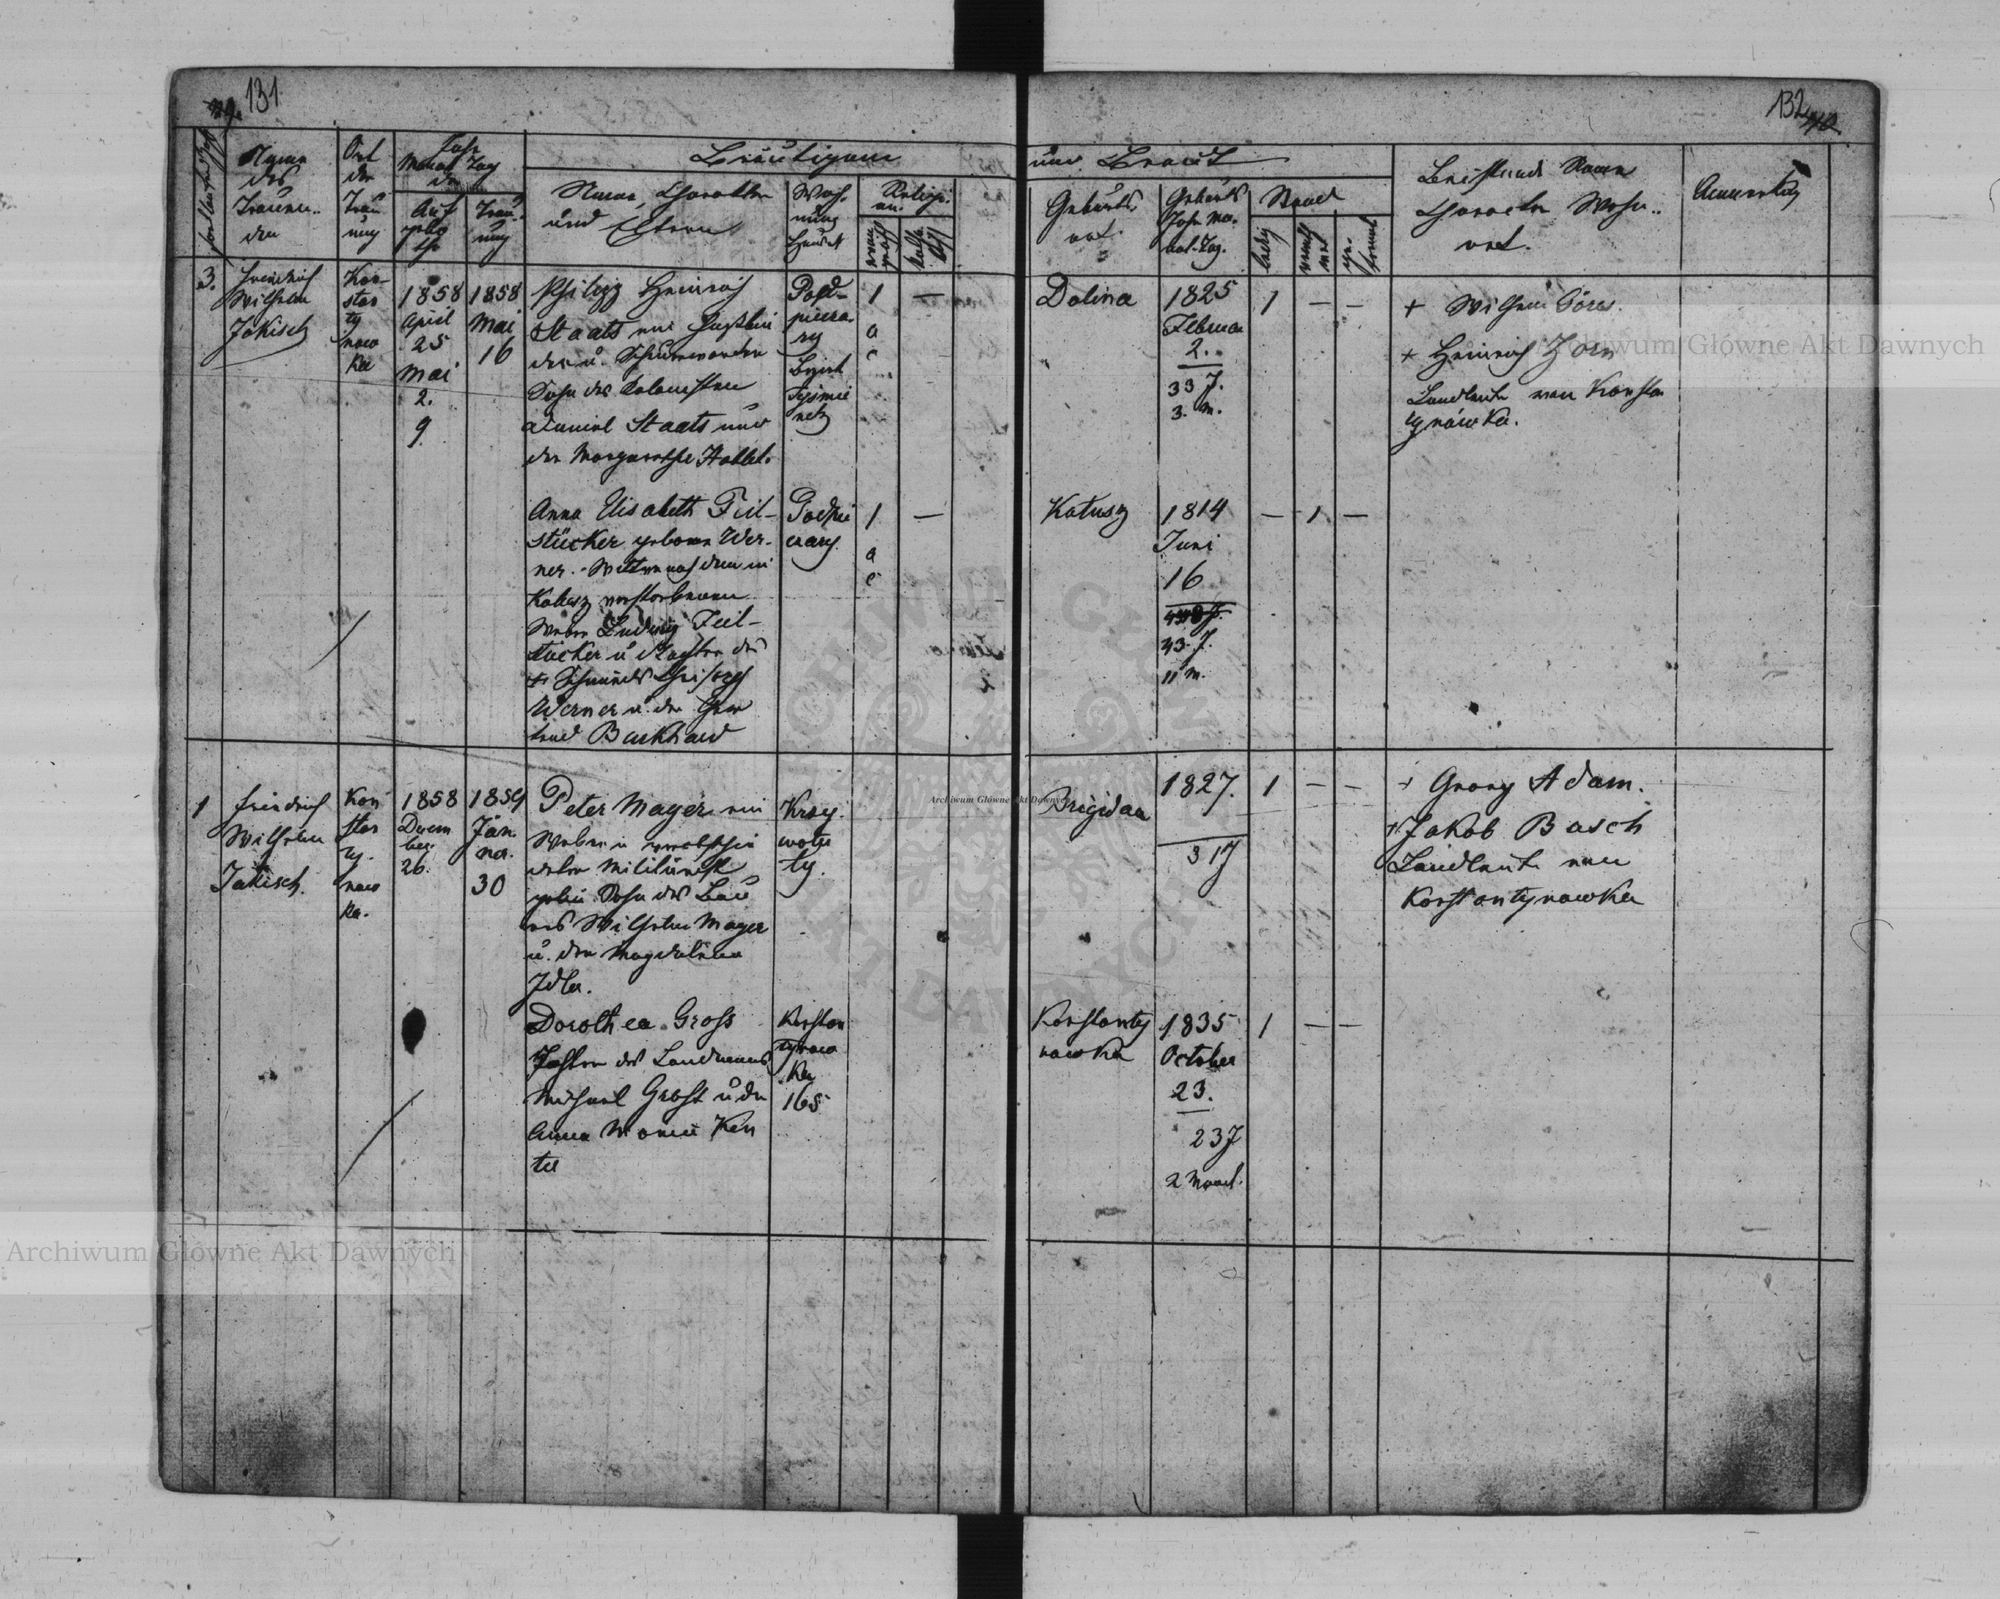 131
132
Name des Trauen-
den
Ort der Trau
ung
Jahr
Monat Tag
der
Auf
gebo
the
Trau-
ung
Bräutigam
und Braut
Name, Charakter
und Eltern
Woh-
nung
Religi-
on.
Geburts-
ort.
Geburts
Jahr Mo-
nat. Tag.
Stand
ledig
Beistände Name
Character Wohn-
ort.
Anmerkung
3.
Friedrich
Wilhelm
Jakisch
Kon-
stan
ty
now
ka
1858
April
25
Mai
2.
9.
1858
Mai
16
Philipp Heinrich
Staats
Sohn des Kolonisten
Daniel Staats und
der Margarethe
Podpieczary
Bezirk
Tysmienitz
1
—
a
c
Dolina
1825
Februar
2.
33 J.
3. M.
1
—
—
+ Wilhelm
+ Heinrich Zorn
Landleute von Konstan
tynówka.
Anna Elisabeth Feil-
stücker geborne Wer-
ner. Wittwe nach dem in
Kalusz verstorbenen
Weber Ludwig Feil-
stücker u Tochter des
+ Schmieds
Werner u. der Ger
traud Burkhard
Podpie
czary
1
—
a
c
Kałusz
1814
Juni
16
43 J.
11 M.
—
1
—
1
Friedrich
Wilhelm
Jakisch.
Kon
stan
ty-
now
ka.
1858
Decem
ber
26.
1859
Jän-
ner.
30
Peter Mayer ein
Weber
Sohn des Bau
ers Wilhelm Mayer
u. der Magdalena
Idler.
Krzy-
wotu
ły.
Brigidau
1827.
31 J
1
—
—
+ Georg Adam.
+ Jakob Basch
Landleute von
Konstantynowka
Dorothea Gross
Tochter des Landmanns
Michael Gross u der
Anna Maria Ken
tel
Konstan
tynow
ka
165
Konstanty
nowka
1835
October
23.
23 J
2 Monat.
1
—
—
Archiwum Główne Akt Dawnych
Archiwum Główne Akt Dawnych
Archiwum Główne Akt Dawnych